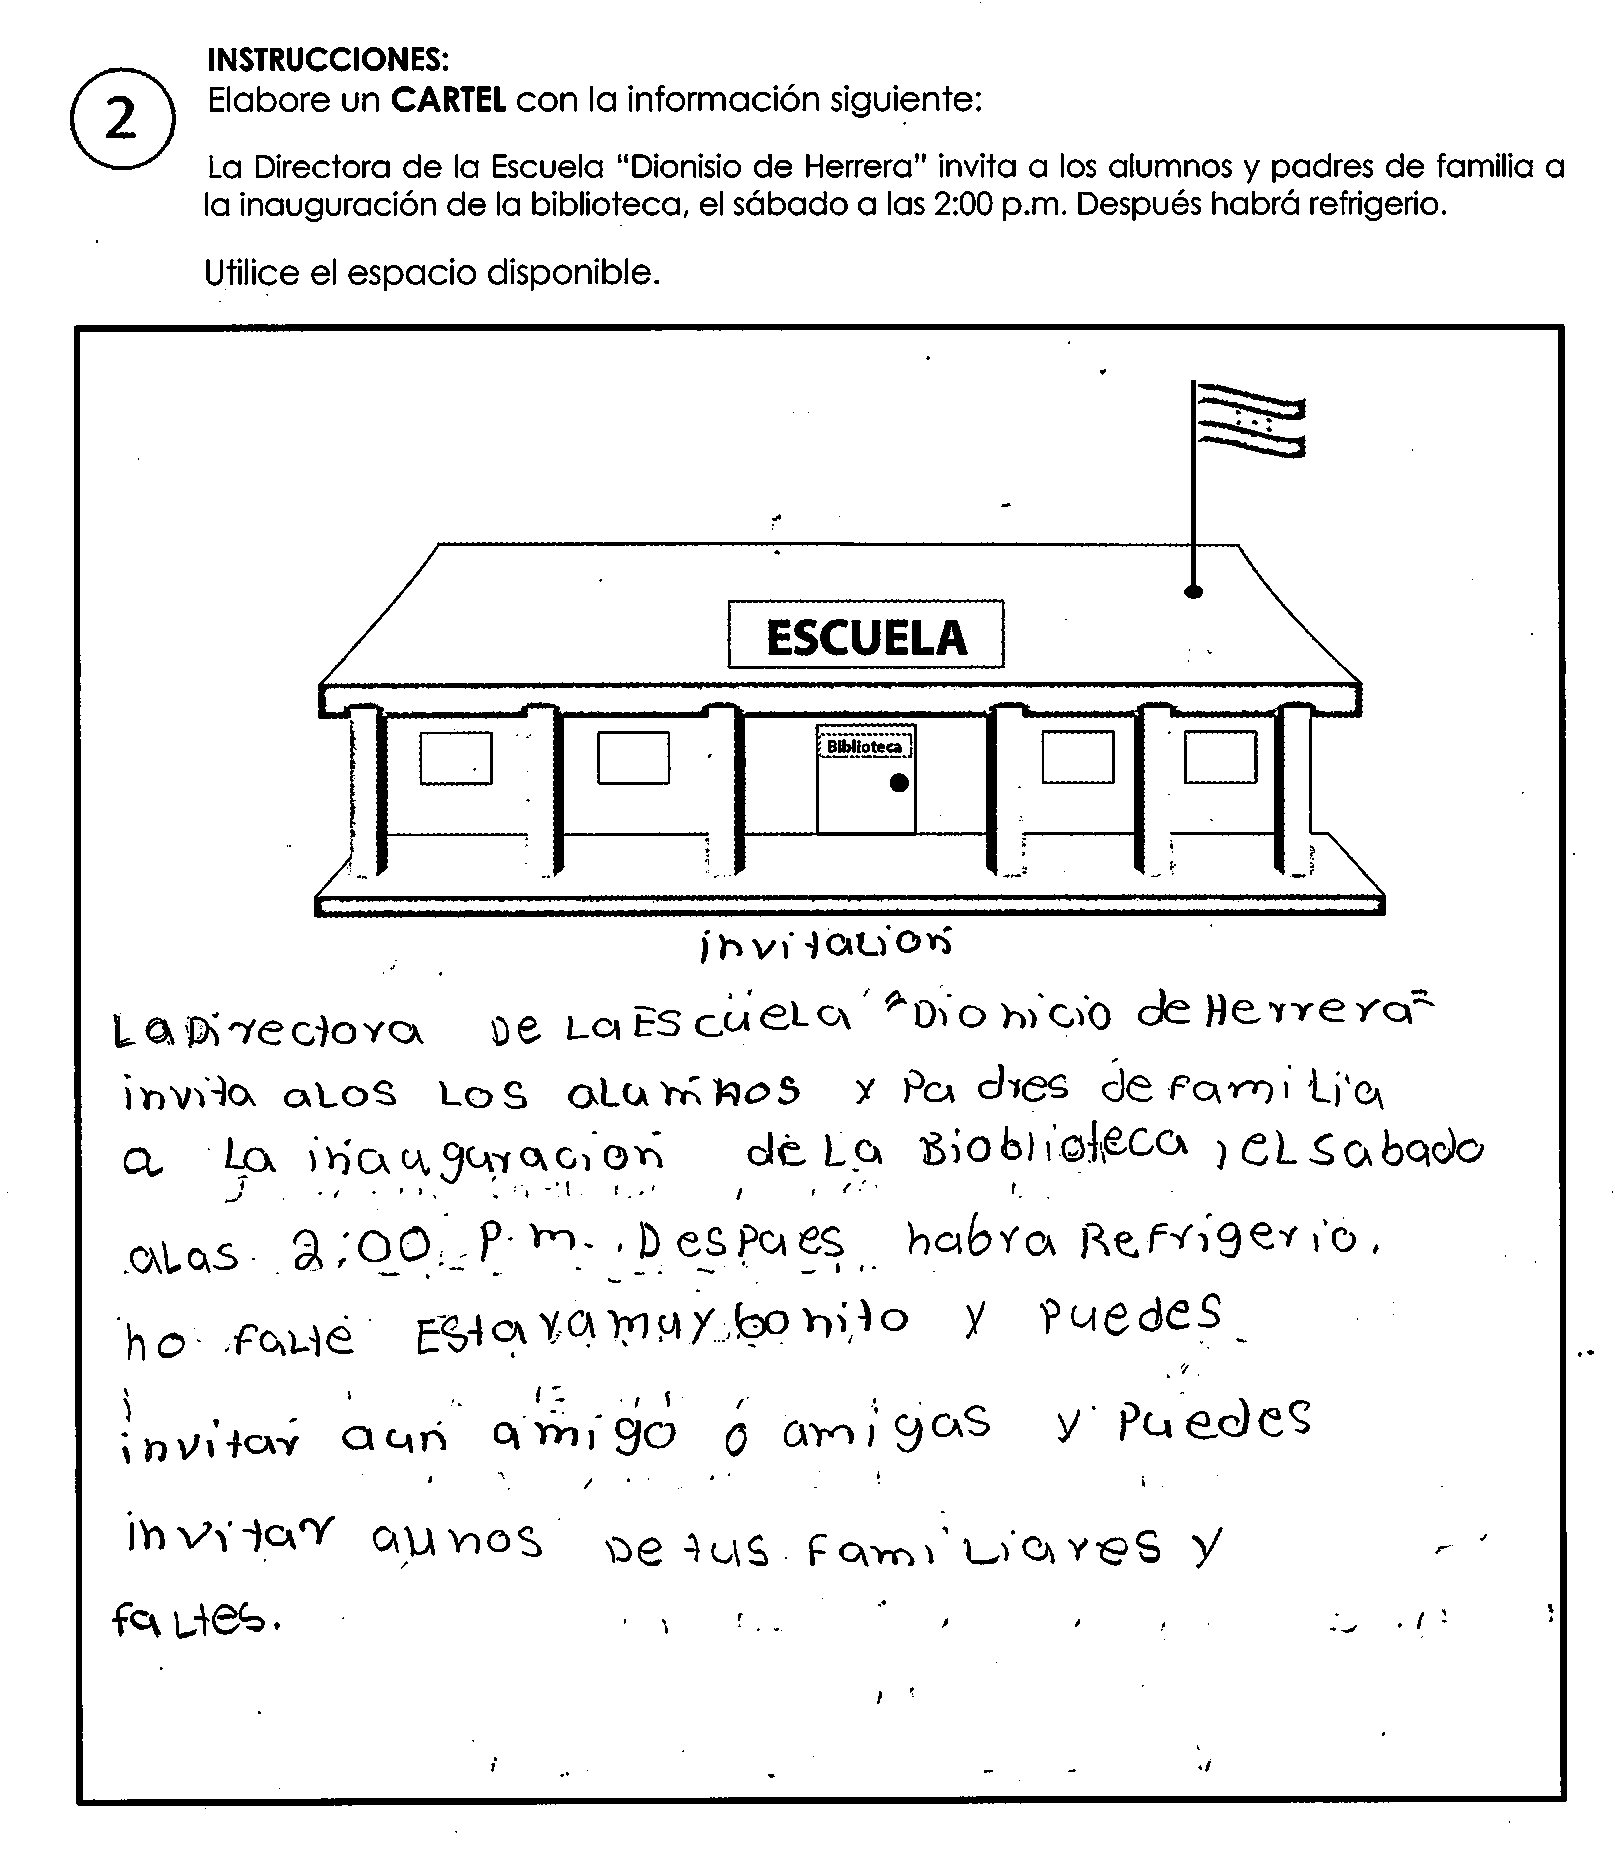 INSTRUCCIONES:
2
Elabore un CARTEL con la información siguiente:
La Directora de la Escuela "Dionisio de Herrera" invita a los alumnos y padres de familia a
la inauguración de la biblioteca, el sábado a las 2:00 p.m. Después habrá refrigerio.
Utilice el espacio disponible.
ESCUELA
Biblioteca
invitacion
La Directora De La EScuela "Dionicio de Herrera"
invita alos Los alumnos y Padres de familia
a La inauguracion de La Bioblioteca, el Sabado
alas 2:00 P.m. Despaes habra Refrigerio.
no falte Estara muy bonito y Puedes
invitar aun amigo ó amigas y Puedes
invitar aunos De tus Familiares y
faltes.